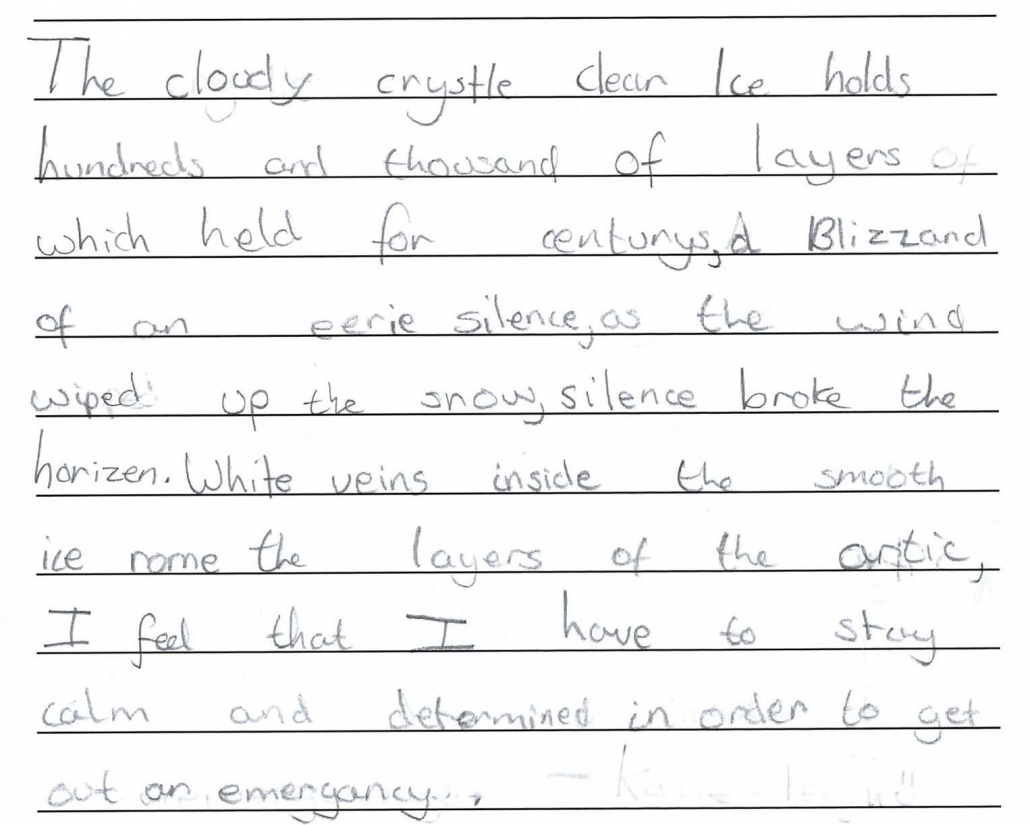 The cloudy crystle clear Ice holds
hundreds and thousand of layers of
which held for centurys, a Blizzard
of an eerie silence, as the wind
wiped up the snow, silence broke the
horizen. White veins inside the smooth
ice rome the layers of the artic,
I feel that I have to stay
calm and determined in order to get
out an emergancy.